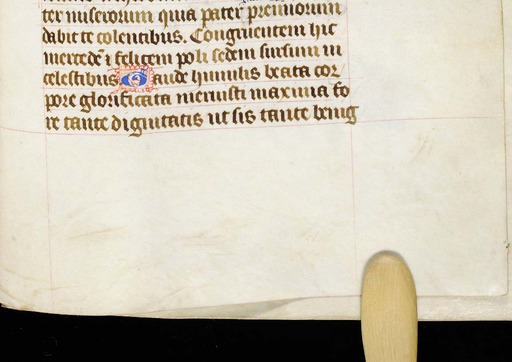 ter miserorum quia pater premiorum
dabit te colentibus. Congruentem hic
mercedē i felicem poli sedem sursum in
celestibus Gaude humilis beata cor
pore glorificata meruisti maxima fo
re tante dignitatis ut sis tante benig